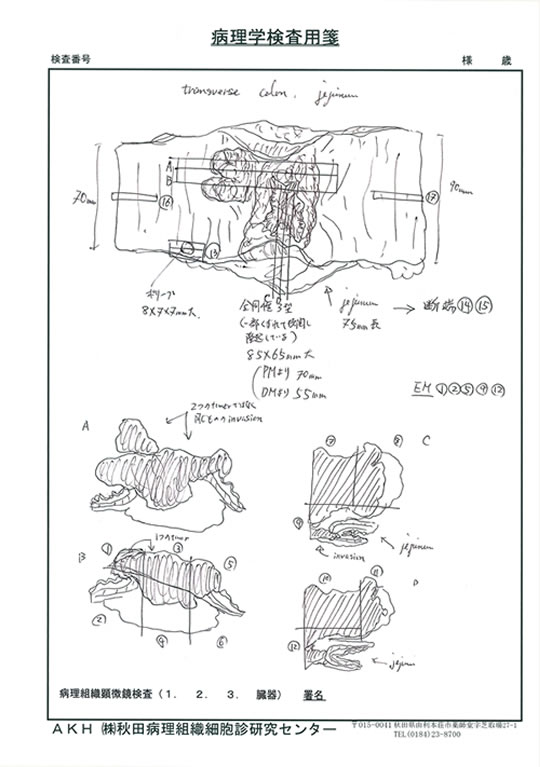 病理学検査用箋
検査番号 様 歳
transverse colon, jejunum
A
B
70mm
90mm
⑯
⑰
⑬
ポリープ
8×7×7mm大
C D
全周性 3型
隆起している)
85×65mm大
(PMより 70mm
DMより 55mm
jejunum
75mm長
→ 断端⑭⑮
EM ①②⑤⑨⑫
2つのtumorではなく
同じもののinvasion
A
C
⑦ ⑧
⑨
invasion
jejunum
B
1つのtumor
① ③ ⑤
② ④ ⑥
D
⑩ ⑪
⑫
病理組織顕微鏡検査(1. 2. 3. 臓器) 署名
AKH ㈱秋田病理組織細胞診研究センター
〒015-0041 秋田県由利本荘市薬師堂字芝取場27-1
TEL(0184)23-8700